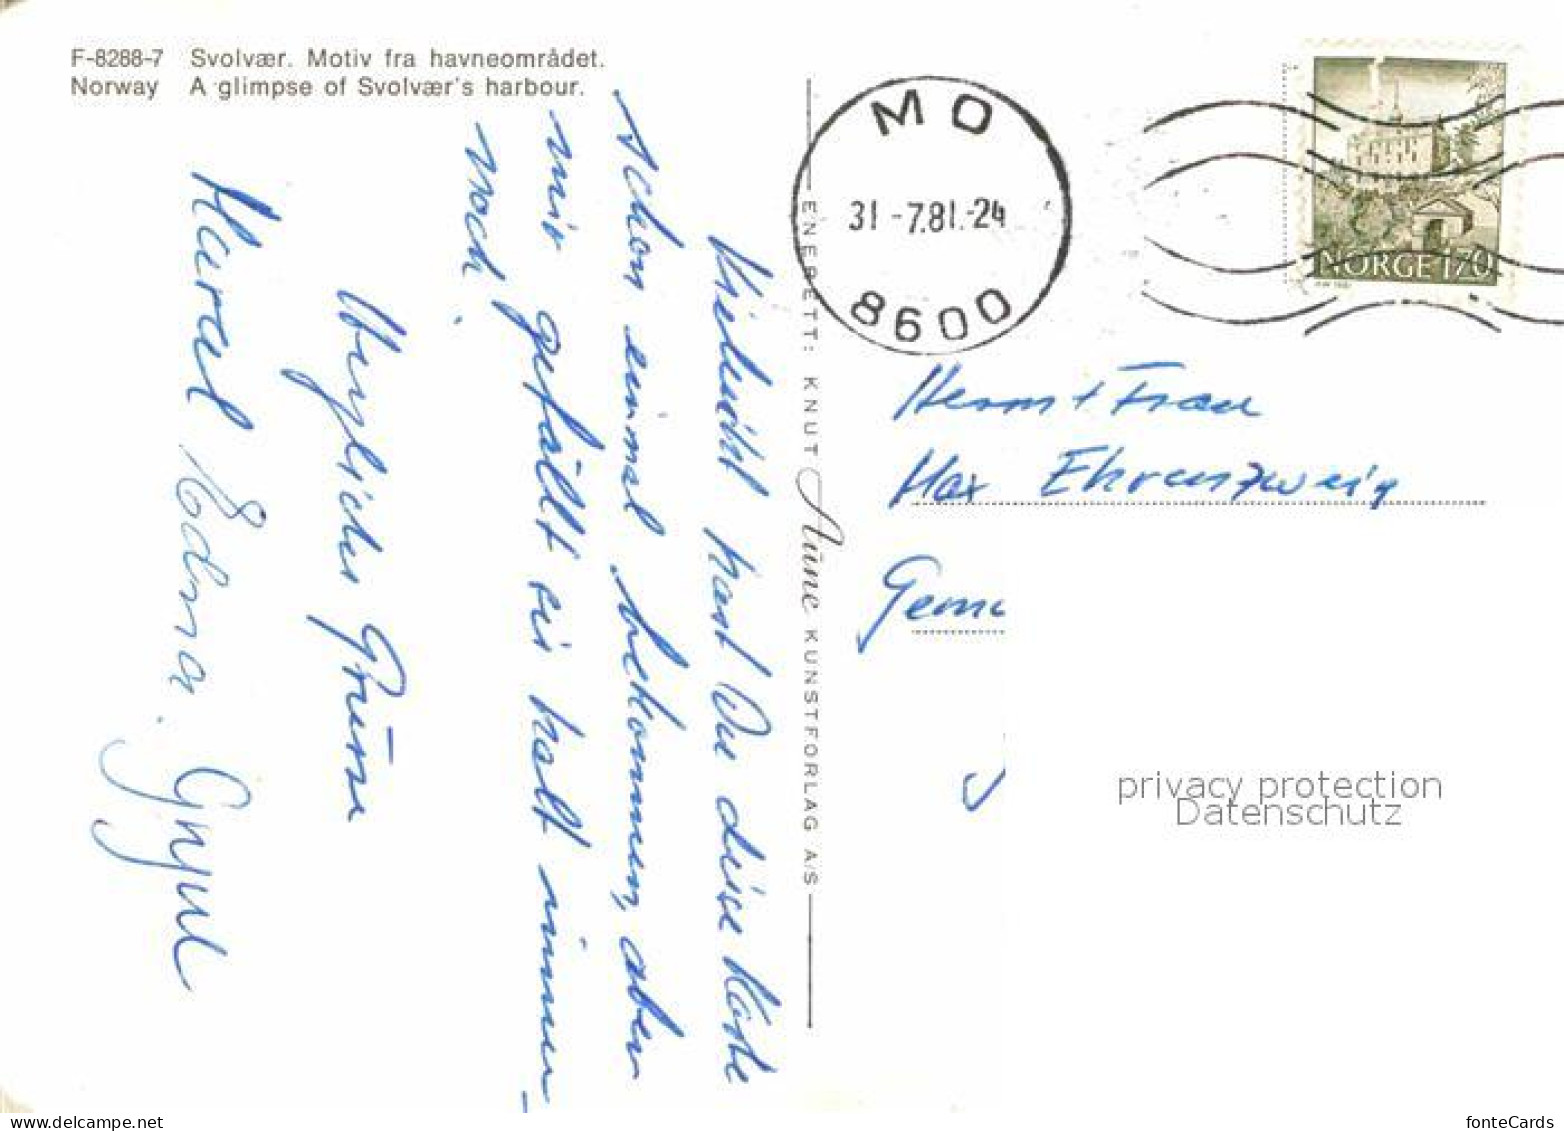 F-8288-7 Svolvær. Motiv fra havneområdet.
Norway A glimpse of Svolvær's harbour.
Vielleicht hast Du diese Karte
schon einmal bekommen, aber
mir gefällt sie halt immer
noch.
Herzliche Grüsse
Edna.
ENERETT: KNUT Aune KUNSTFORLAG A/S
MO
31-7.81.-24
8600
NORGE 170
Herrn + Frau
Max Ehrenzweig
privacy protection
Datenschutz
www.delcampe.net
fonteCards